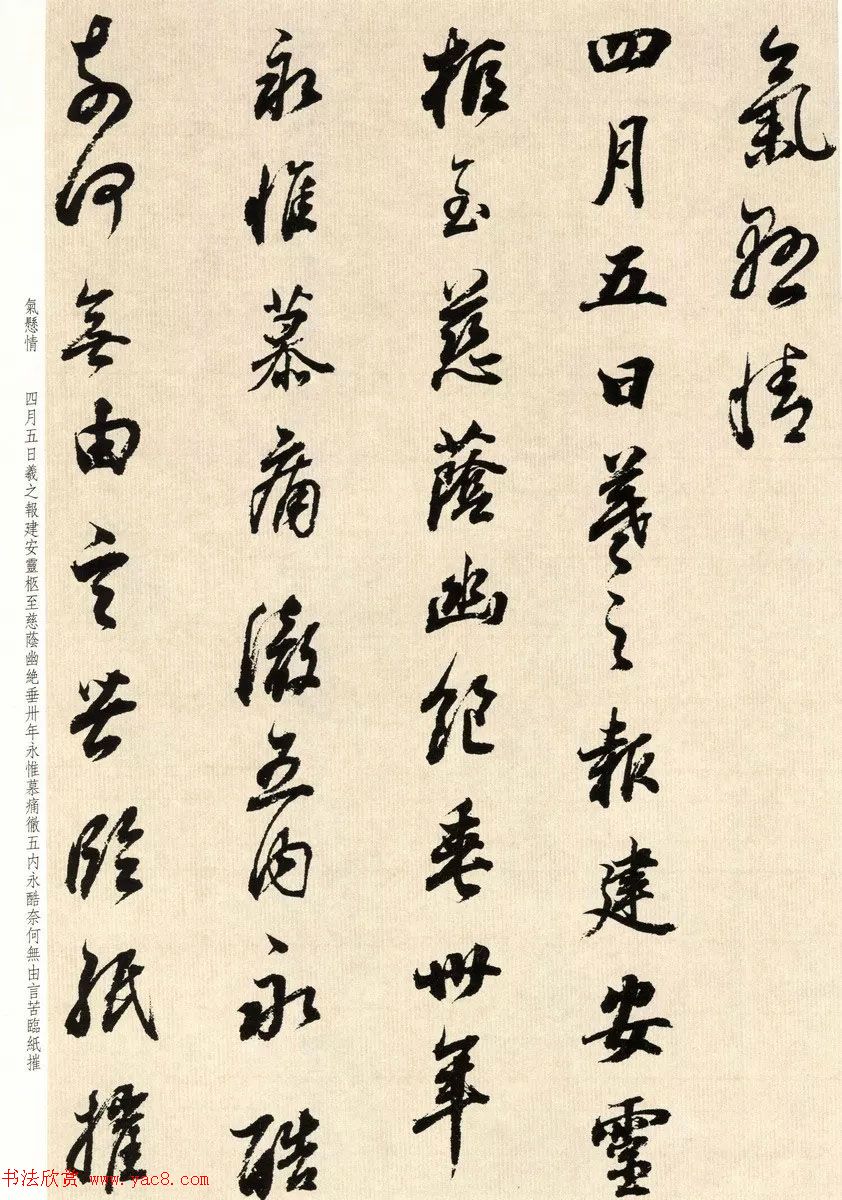 氣懸情
四月五日羲之報建安靈
柩至慈蔭幽絶垂卅年
永惟慕痛徹五内永酷
奈何無由言苦臨紙摧
氣懸情 四月五日羲之報建安靈柩至慈蔭幽絶垂卅年永惟慕痛徹五内永酷奈何無由言苦臨紙摧
书法欣赏 www.yac8.com